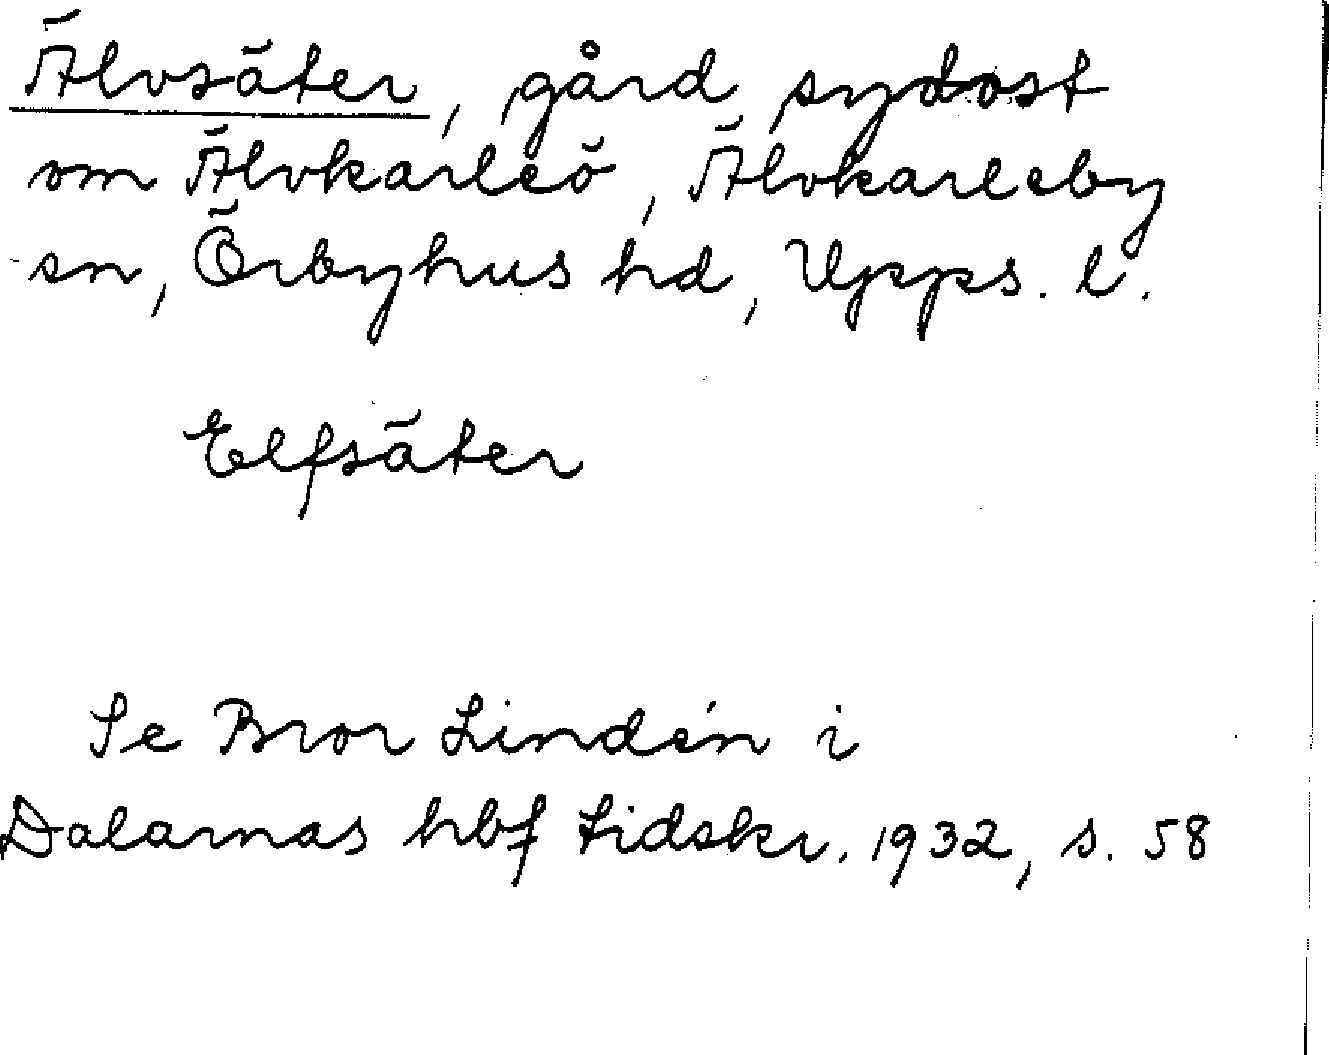 Älvsäter, gård sydost
om Älvkarleö, Älvkarleby
sn, Örbyhus hd, Upps. l.
Elfsäter
Se Bror Lindén i
Dalarnas hbf tidskr. 1932, s. 58